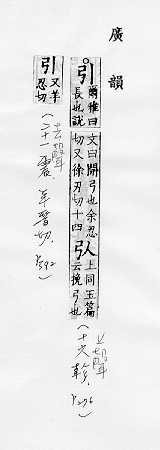 廣韻
引爾雅曰長也說文曰開弓也余忍切又徐刃切十四
上同玉篇云挽弓也
(上聲 十六軫. P276)
引又羊忍切
(去聲 二十一震 羊晉切. P392)